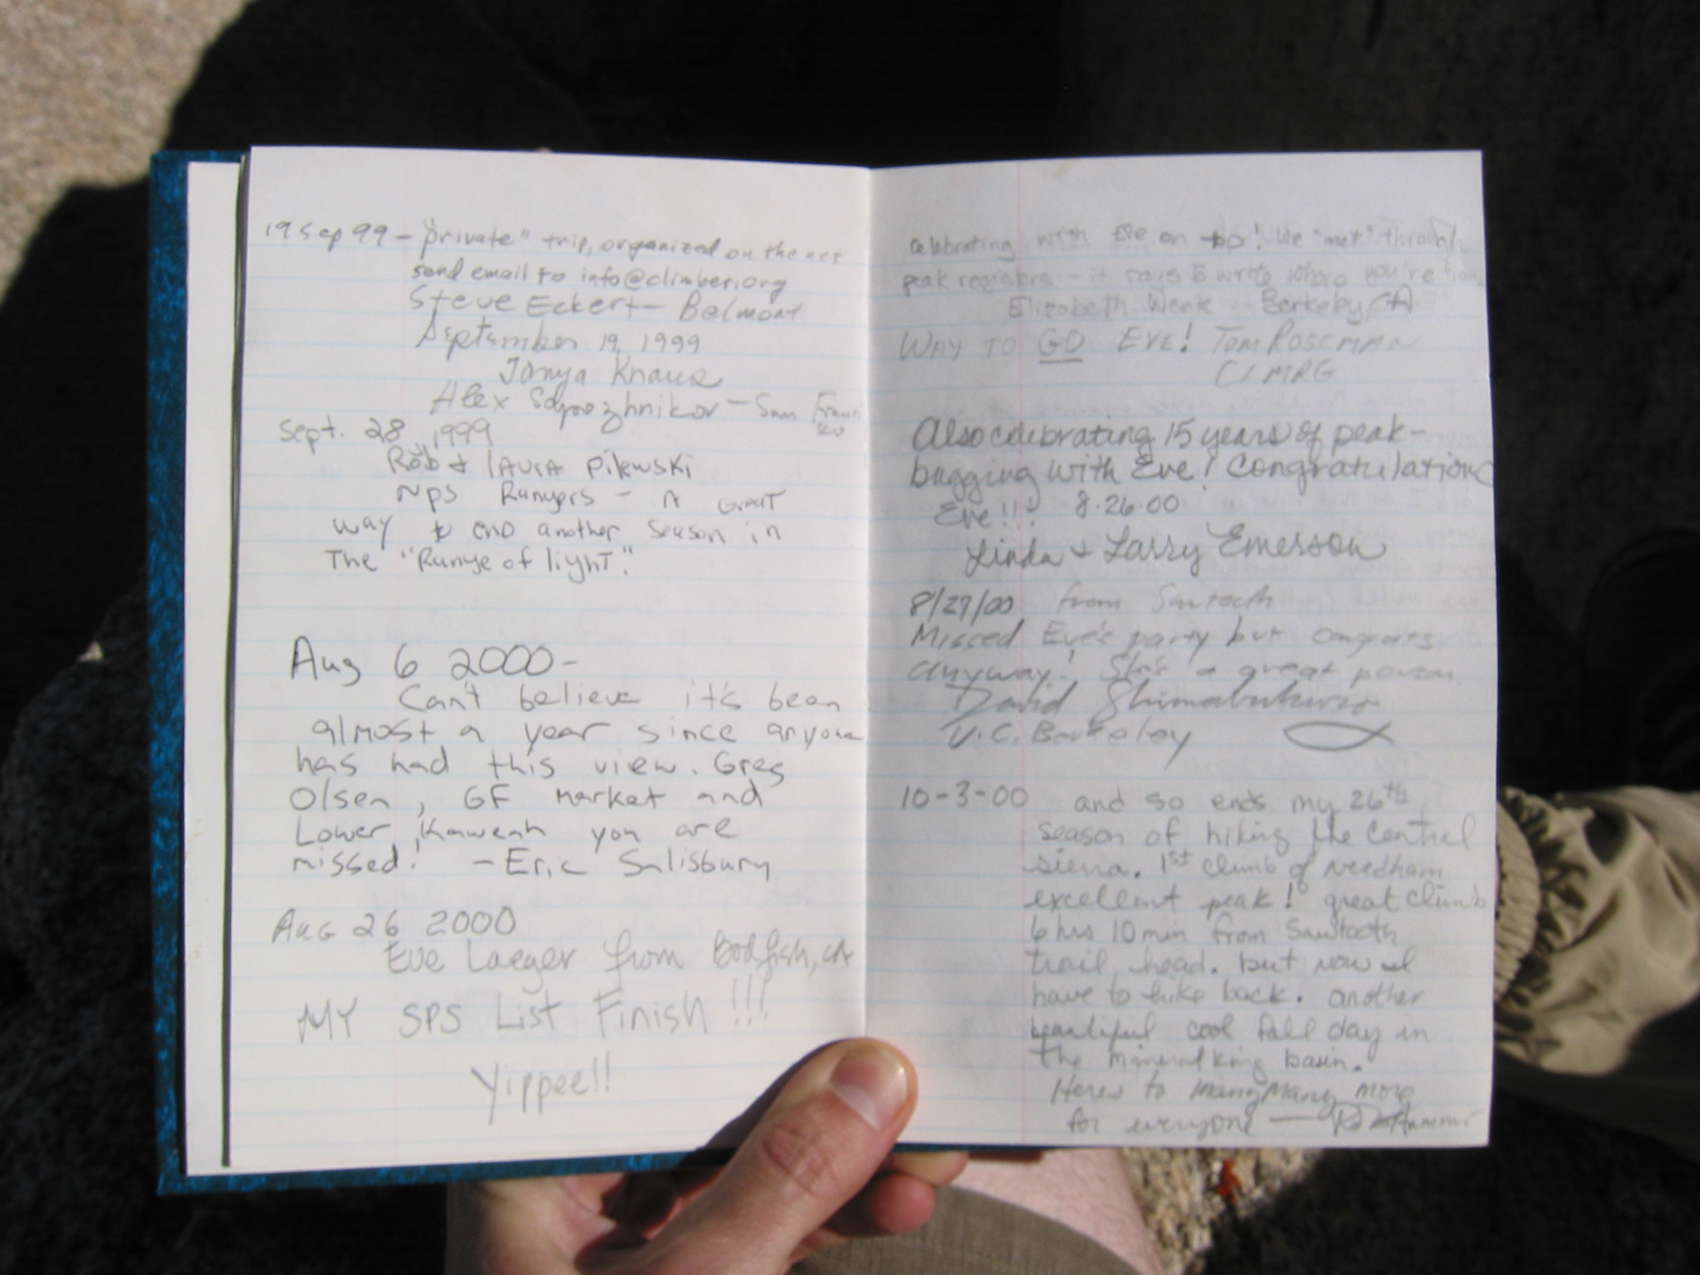 19 Sep 99 - "private" trip, organized on the net
send email to info@climber.org
Steve Eckert - Belmont
September 19, 1999
Tanya Knaus
Alex Sapozhnikov - San Francisco
Sept. 28, 1999
Rob & Laura Pilewski
NPS Rangers - A Great
way to end another season in
The "Range of light".
Aug 6 2000 -
Can't believe it's been
almost a year since anyone
has had this view. Greg
Olsen, GF Market and
Lower Kaweah you are
missed! - Eric Salisbury
Aug 26 2000
Eve Laeger from Bodfish, CA
MY SPS List Finish !!!
Yippee!!
Celebrating with Eve on top! We "met" through
peak registers - it pays to write where you're from
Elizabeth Wenk Berkeley, CA
WAY TO GO EVE! TOM ROSEMAN
CLMRG
Also celebrating 15 years of peak-
bagging with Eve! Congratulations
Eve!!! 8.26.00
Linda & Larry Emerson
8/27/00 from Sawtooth
Missed Eve's party but congrats
anyway! She's a great person
David Shimabukuro
U.C. Berkeley
10-3-00 and so ends my 26th
season of hiking the central
sierra. 1st climb of Needham
excellent peak! great climb
6 hrs 10 min from Sawtooth
trail head. but now I
have to hike back. another
beautiful cool fall day in
the mineral king basin.
Heres to many many more
for everyone —